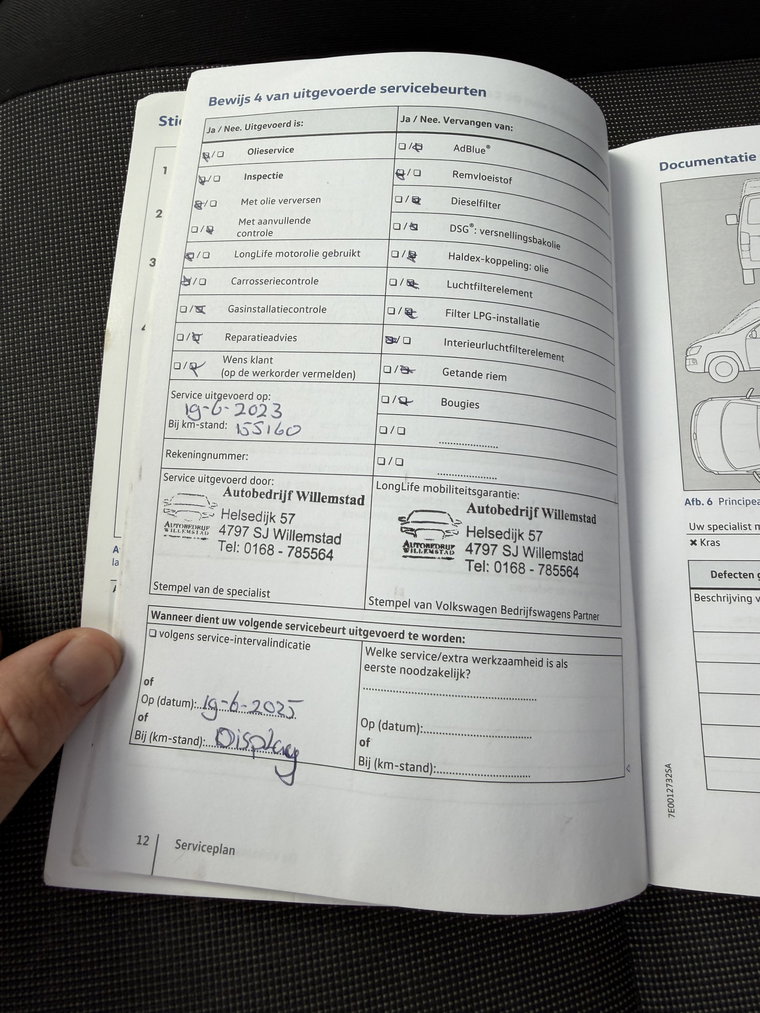 Bewijs 4 van uitgevoerde servicebeurten
Ja / Nee. Uitgevoerd is:
Olieservice
Inspectie
Met olie verversen
Met aanvullende
controle
LongLife motorolie gebruikt
Carrosseriecontrole
Gasinstallatiecontrole
Reparatieadvies
Wens klant
(op de werkorder vermelden)
Service uitgevoerd op:
19-6-2023
Bij km-stand: 155160
Rekeningnummer:
Service uitgevoerd door:
Autobedrijf Willemstad
Helsedijk 57
4797 SJ Willemstad
Tel: 0168 - 785564
AUTOBEDRIJF
WILLEMSTAD
Stempel van de specialist
Ja / Nee. Vervangen van:
AdBlue®
Remvloeistof
Dieselfilter
DSG®: versnellingsbakolie
Haldex-koppeling: olie
Luchtfilterelement
Filter LPG-installatie
Interieurluchtfilterelement
Getande riem
Bougies
LongLife mobiliteitsgarantie:
Autobedrijf Willemstad
Helsedijk 57
4797 SJ Willemstad
Tel: 0168 - 785564
AUTOBEDRIJF
WILLEMSTAD
Stempel van Volkswagen Bedrijfswagens Partner
Wanneer dient uw volgende servicebeurt uitgevoerd te worden:
volgens service-intervalindicatie
of
Op (datum): 19-6-2025
of
Bij (km-stand): Display
Welke service/extra werkzaamheid is als
eerste noodzakelijk?
Op (datum):
of
Bij (km-stand):
12 Serviceplan
Stic
1
2
3
Documentatie
Afb. 6 Principea
Uw specialist m
✖ Kras
Defecten g
Beschrijving v
7E0012732SA